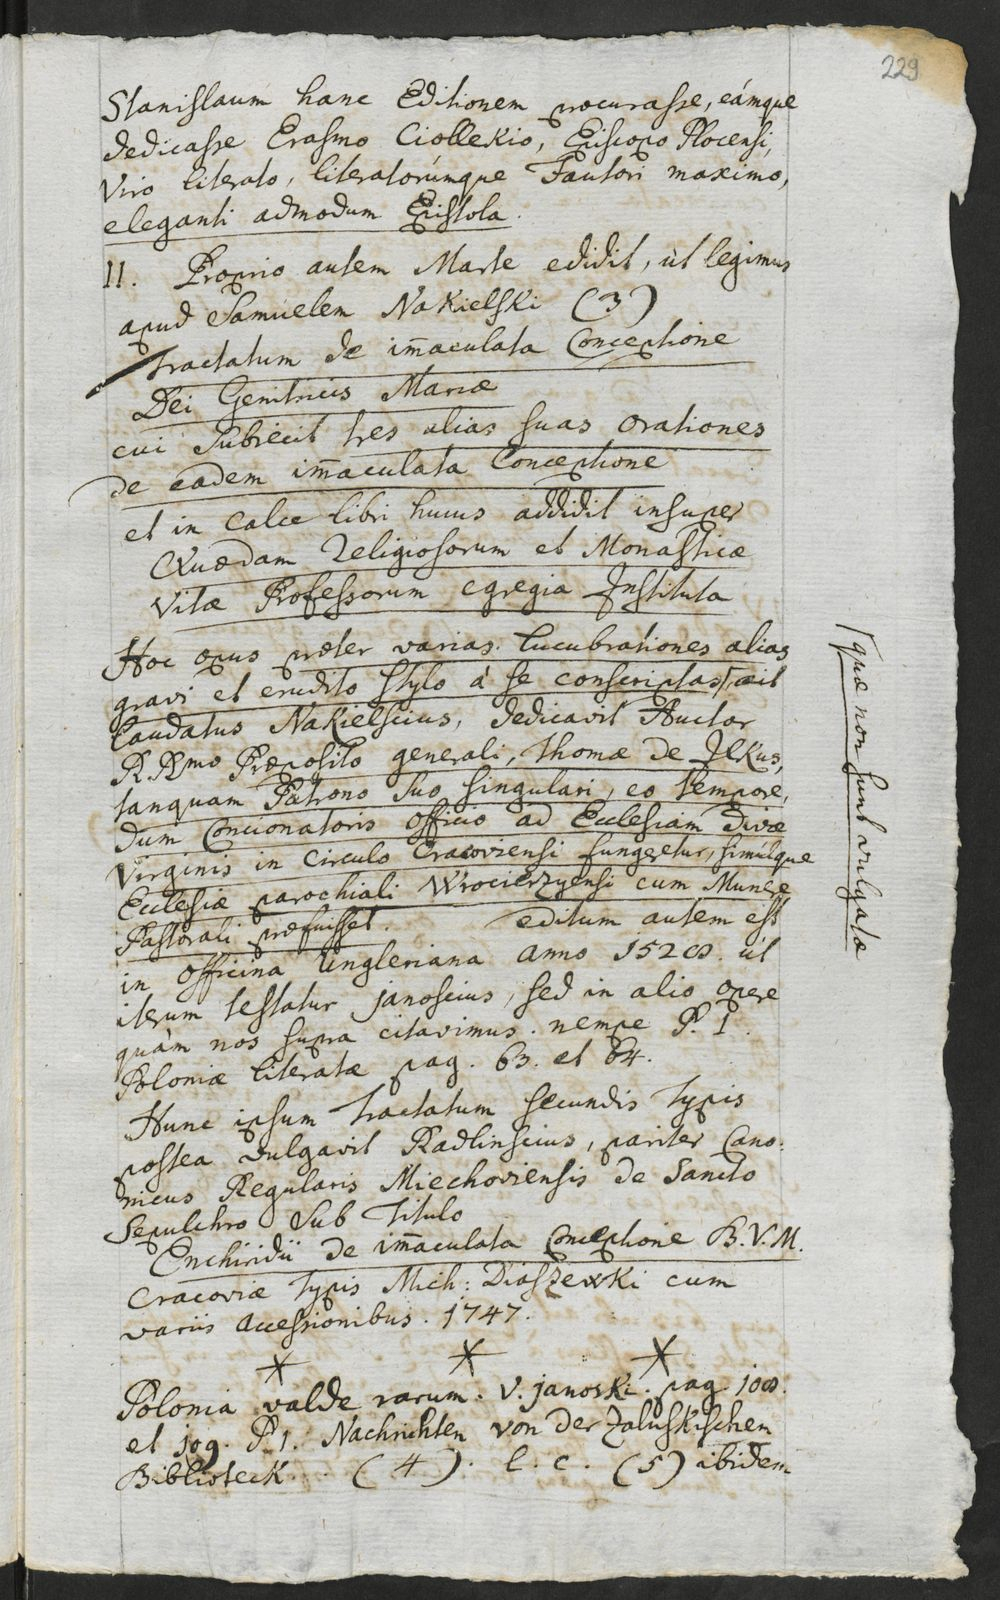 229
Stanislaum hanc Editionem procurasse, eámque
dedicasse Erasmo Ciollekio, Episcopo Plocensi,
Viro literato, literatorúmque Fautori maximo,
eleganti admodum Epistola.
II. Proprio autem Marte edidit, út legimus
apud Samuelem Nakielski (3)
Tractatum de im̄aculata Conceptione
Dei Genitricis Mariæ
cui Subiecit tres alias suas orationes
de eadem im̄aculata Conceptione
et in calce libri huius addidit insuper
Quædam Religiosorum et Monasticæ
Vitæ Professorum egregia Instituta
Hoc opus præter varias lucubrationes alias
gravi et erudito stylo à se conscriptas, ait
laudatus Nakielscius, dedicavit Auctor
R Rmo Præposito generali, Thomæ de Ilkus,
tanquam Patrono suo singulari, eo tempore,
dum Concionatoris officio ad Ecclesiam Divæ
Virginis in circulo Cracoviensi fungeretur, simúlque
Ecclesiæ parochiali Wrocierzyensi cum Munere
Pastorali præfuisset. editum autem est
in officina Ungleriana anno 1520. út
iterum testatur Janoscius, sed in alio opere
quàm nos supra citavimus. nempe P. I.
Poloniæ literatæ pag. 63. et 64.
Hunc ipsum Tractatum secundis Typis
postea vulgavit Radlinscius, pariter Cano-
nicus Regularis Miechoviensis de Sancto
Sepulchro sub Titulo
Enchiridii de im̄aculata conceptione B.V.M.
Cracoviæ Typis Mich: Diaszewski cum
variis accessionibus. 1747.
Polonia valde rarum. V. Janoski. pag. 108.
et 109. P.1. Nachrichten von der Zaluskischen
Biblioteck. (4). l. c. (5) ibidem
quæ non sunt vulgatæ